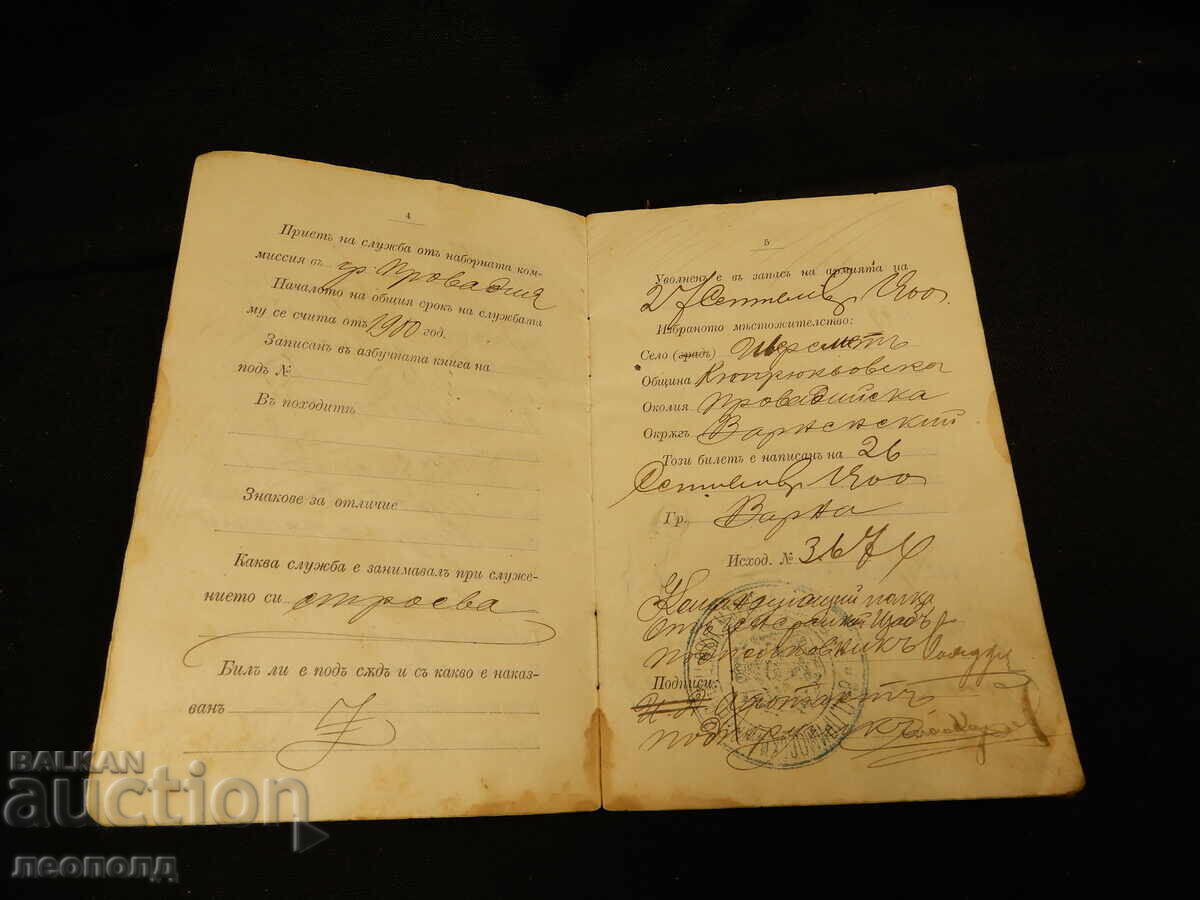 4
Приетъ на служба отъ наборната ком-
миссия въ гр. Провадия
Началото на общия срокъ на службата
му се счита отъ 1900 год.
Записанъ въ азбучната книга на
подъ №
Въ походитѣ
Знакове за отличие
Каква служба е занимавалъ при служе-
нието си строева
Билъ ли е подъ сѫдъ и съ какво е наказ-
ванъ
5
Уволненъ е въ запасъ на армията на
27 Септемвр. 1900
Избраното мѣстожителство:
Село (градъ)
Община Кюпрюкьовска
Околия Провадийска
Окрѫгъ Варненский
Този билетъ е написанъ на 26
Септемвр. 1900
Гр. Варна
Исход. №
Командующий полка
Подполковникъ
Подписи:
BALKAN
auction
леополд